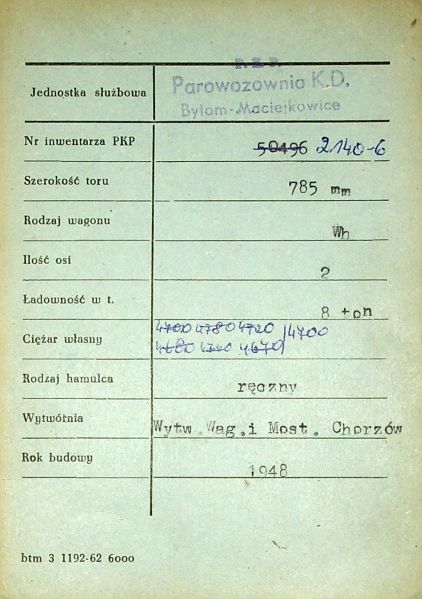 P.K.P.
Parowozownia K.D.
Jednostka służbowa
Bytom-Maciejkowice
Nr inwentarza PKP 50496 2140-6
Szerokość toru 785 mm
Rodzaj wagonu Wh
Ilość osi 2
Ładowność w t. 8 ton
4700 4780 4720 4700
Ciężar własny
4680 4670
Rodzaj hamulca ręczny
Wytwótnia Wytw. Wag. i Most. Chorzów
Rok budowy 1948
btm 3 1192-62 6000